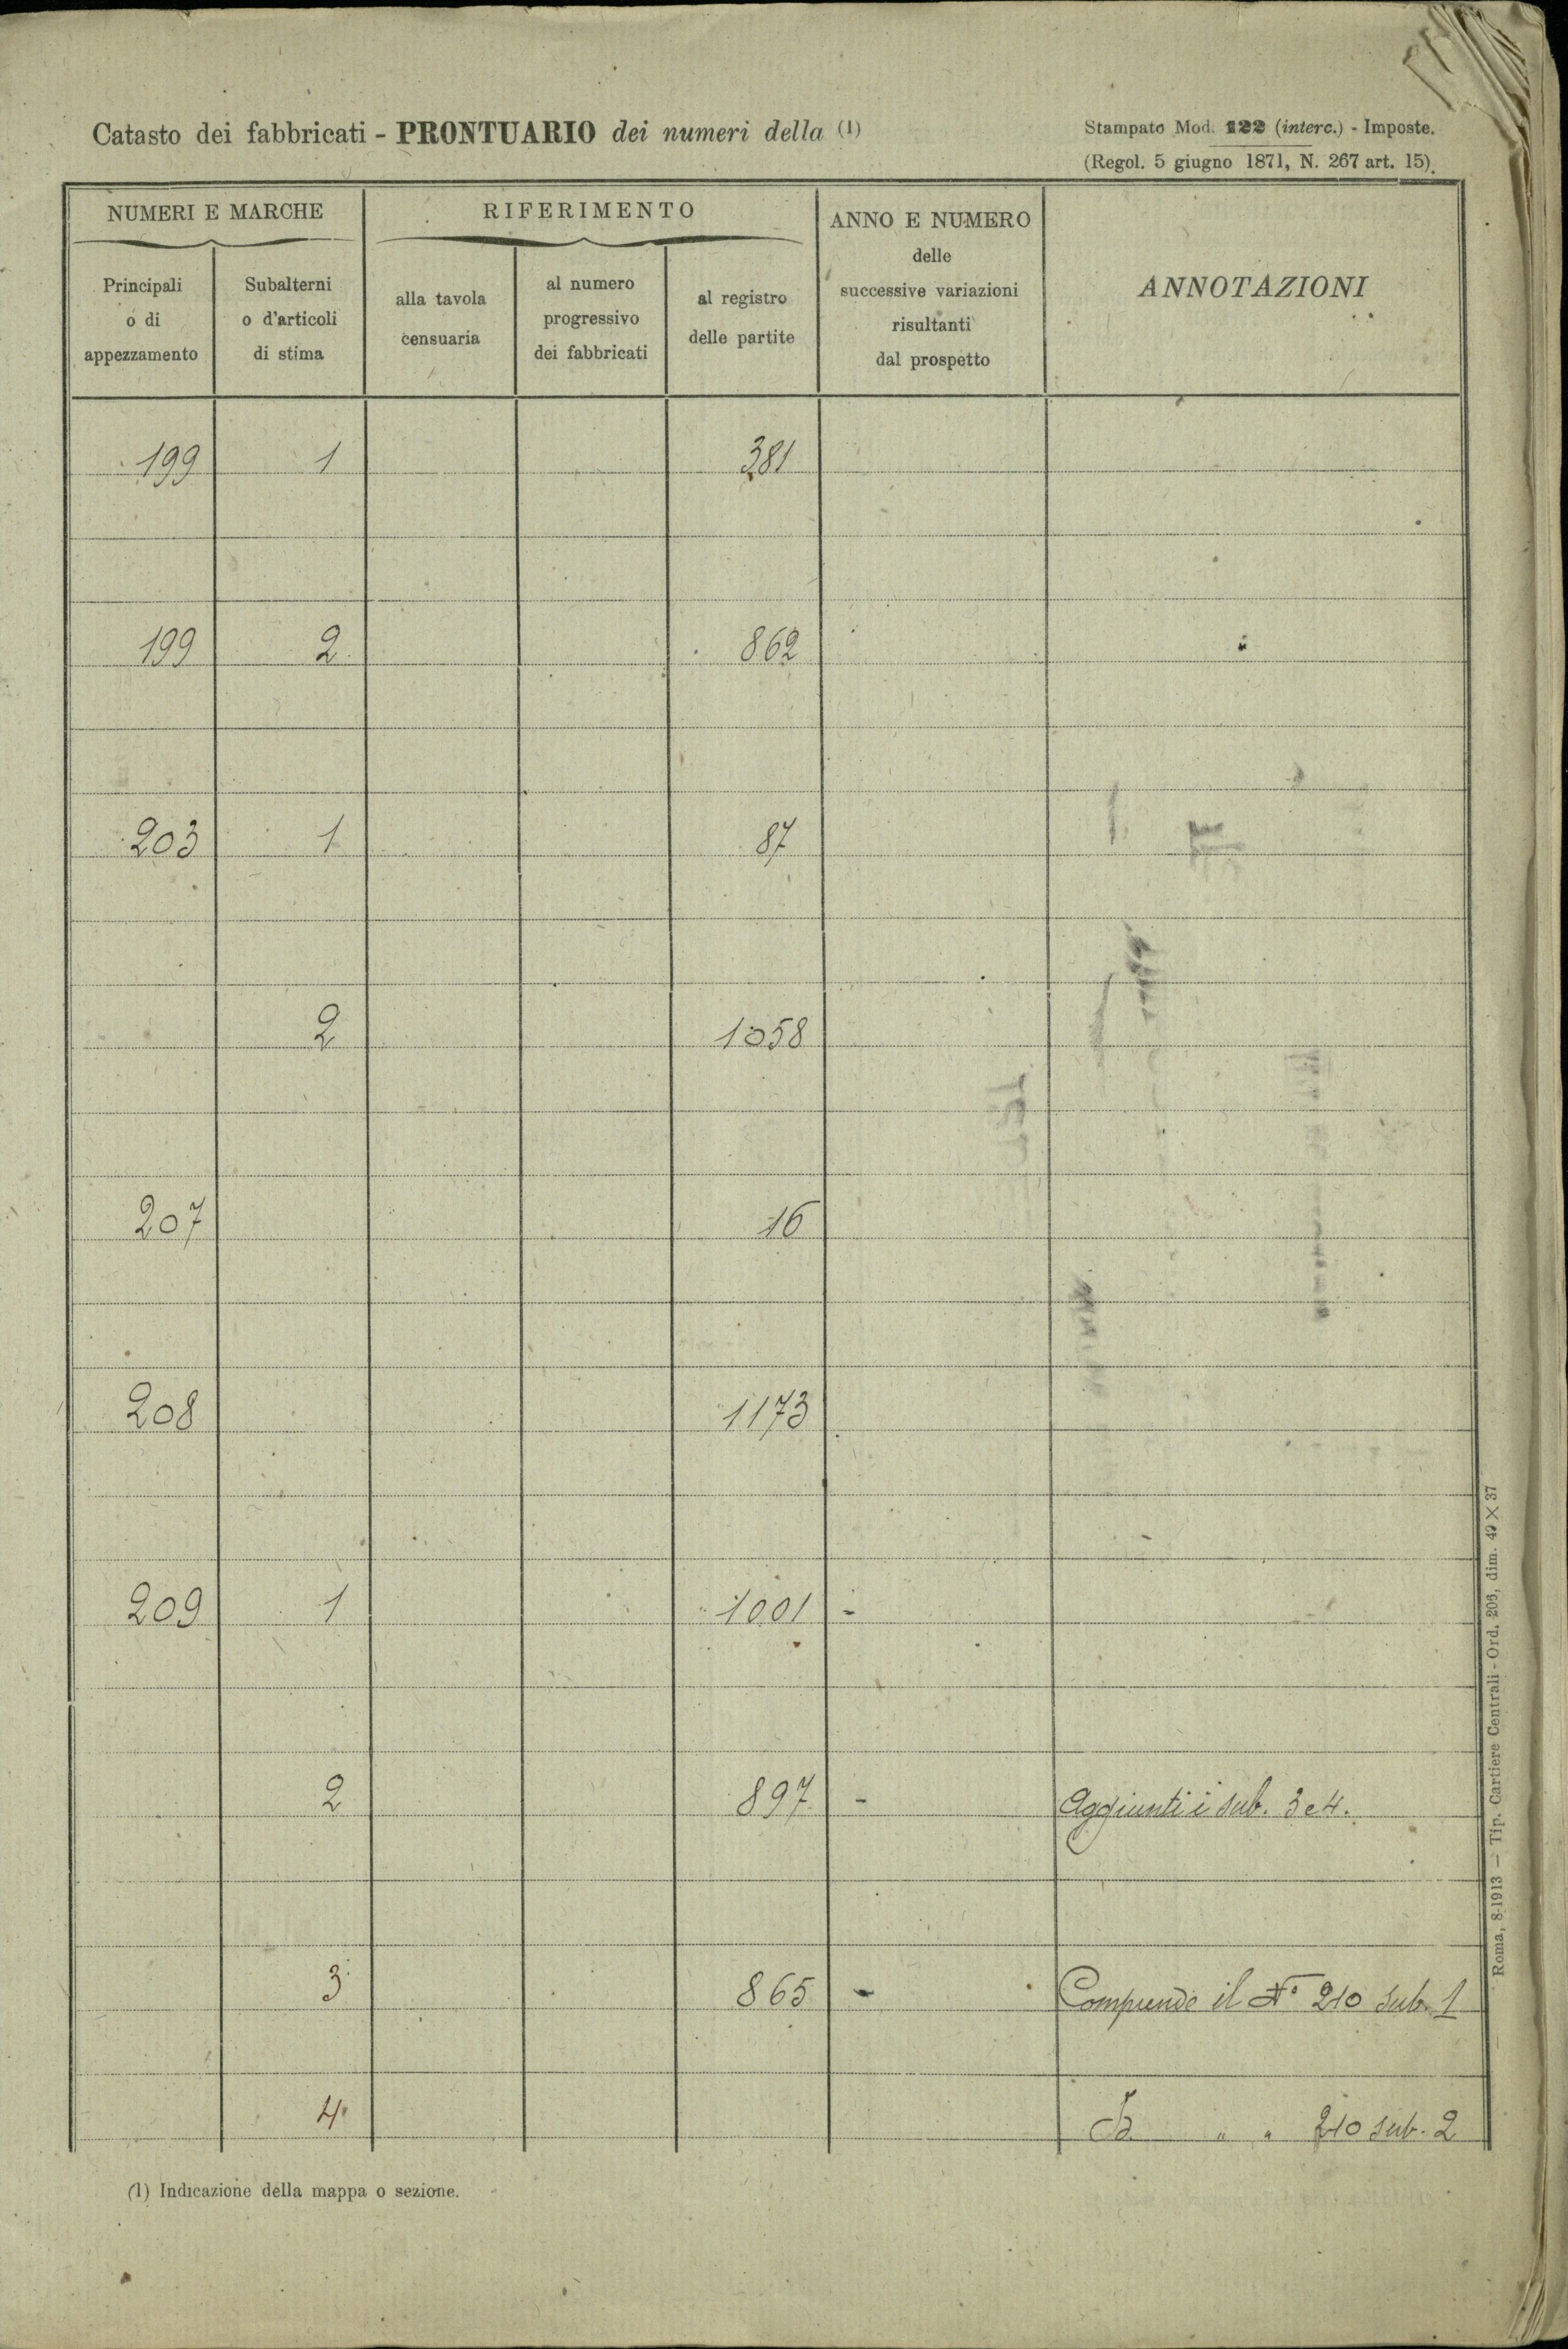 Catasto dei fabbricati - PRONTUARIO dei numeri della (1)
Stampato Mod. 122 (interc.) - Imposte.
(Regol. 5 giugno 1871, N. 267 art. 15).
NUMERI E MARCHE
RIFERIMENTO
ANNO E NUMERO
delle
successive variazioni
risultanti
dal prospetto
ANNOTAZIONI
Principali
o di
appezzamento
Subalterni
o d'articoli
di stima
alla tavola
censuaria
al numero
progressivo
dei fabbricati
al registro
delle partite
199 1 381
199 2 862
203 1 87
2 1058
207 16
208 1173
209 1 1001 -
2 897 - Aggiunti i sub. 3 e 4.
3 865 - Comprende il N° 210 sub. 1
4 Id " " 210 sub. 2
(1) Indicazione della mappa o sezione.
Roma, 8-1913 — Tip. Cartiere Centrali - Ord. 206, dim. 49 X 37